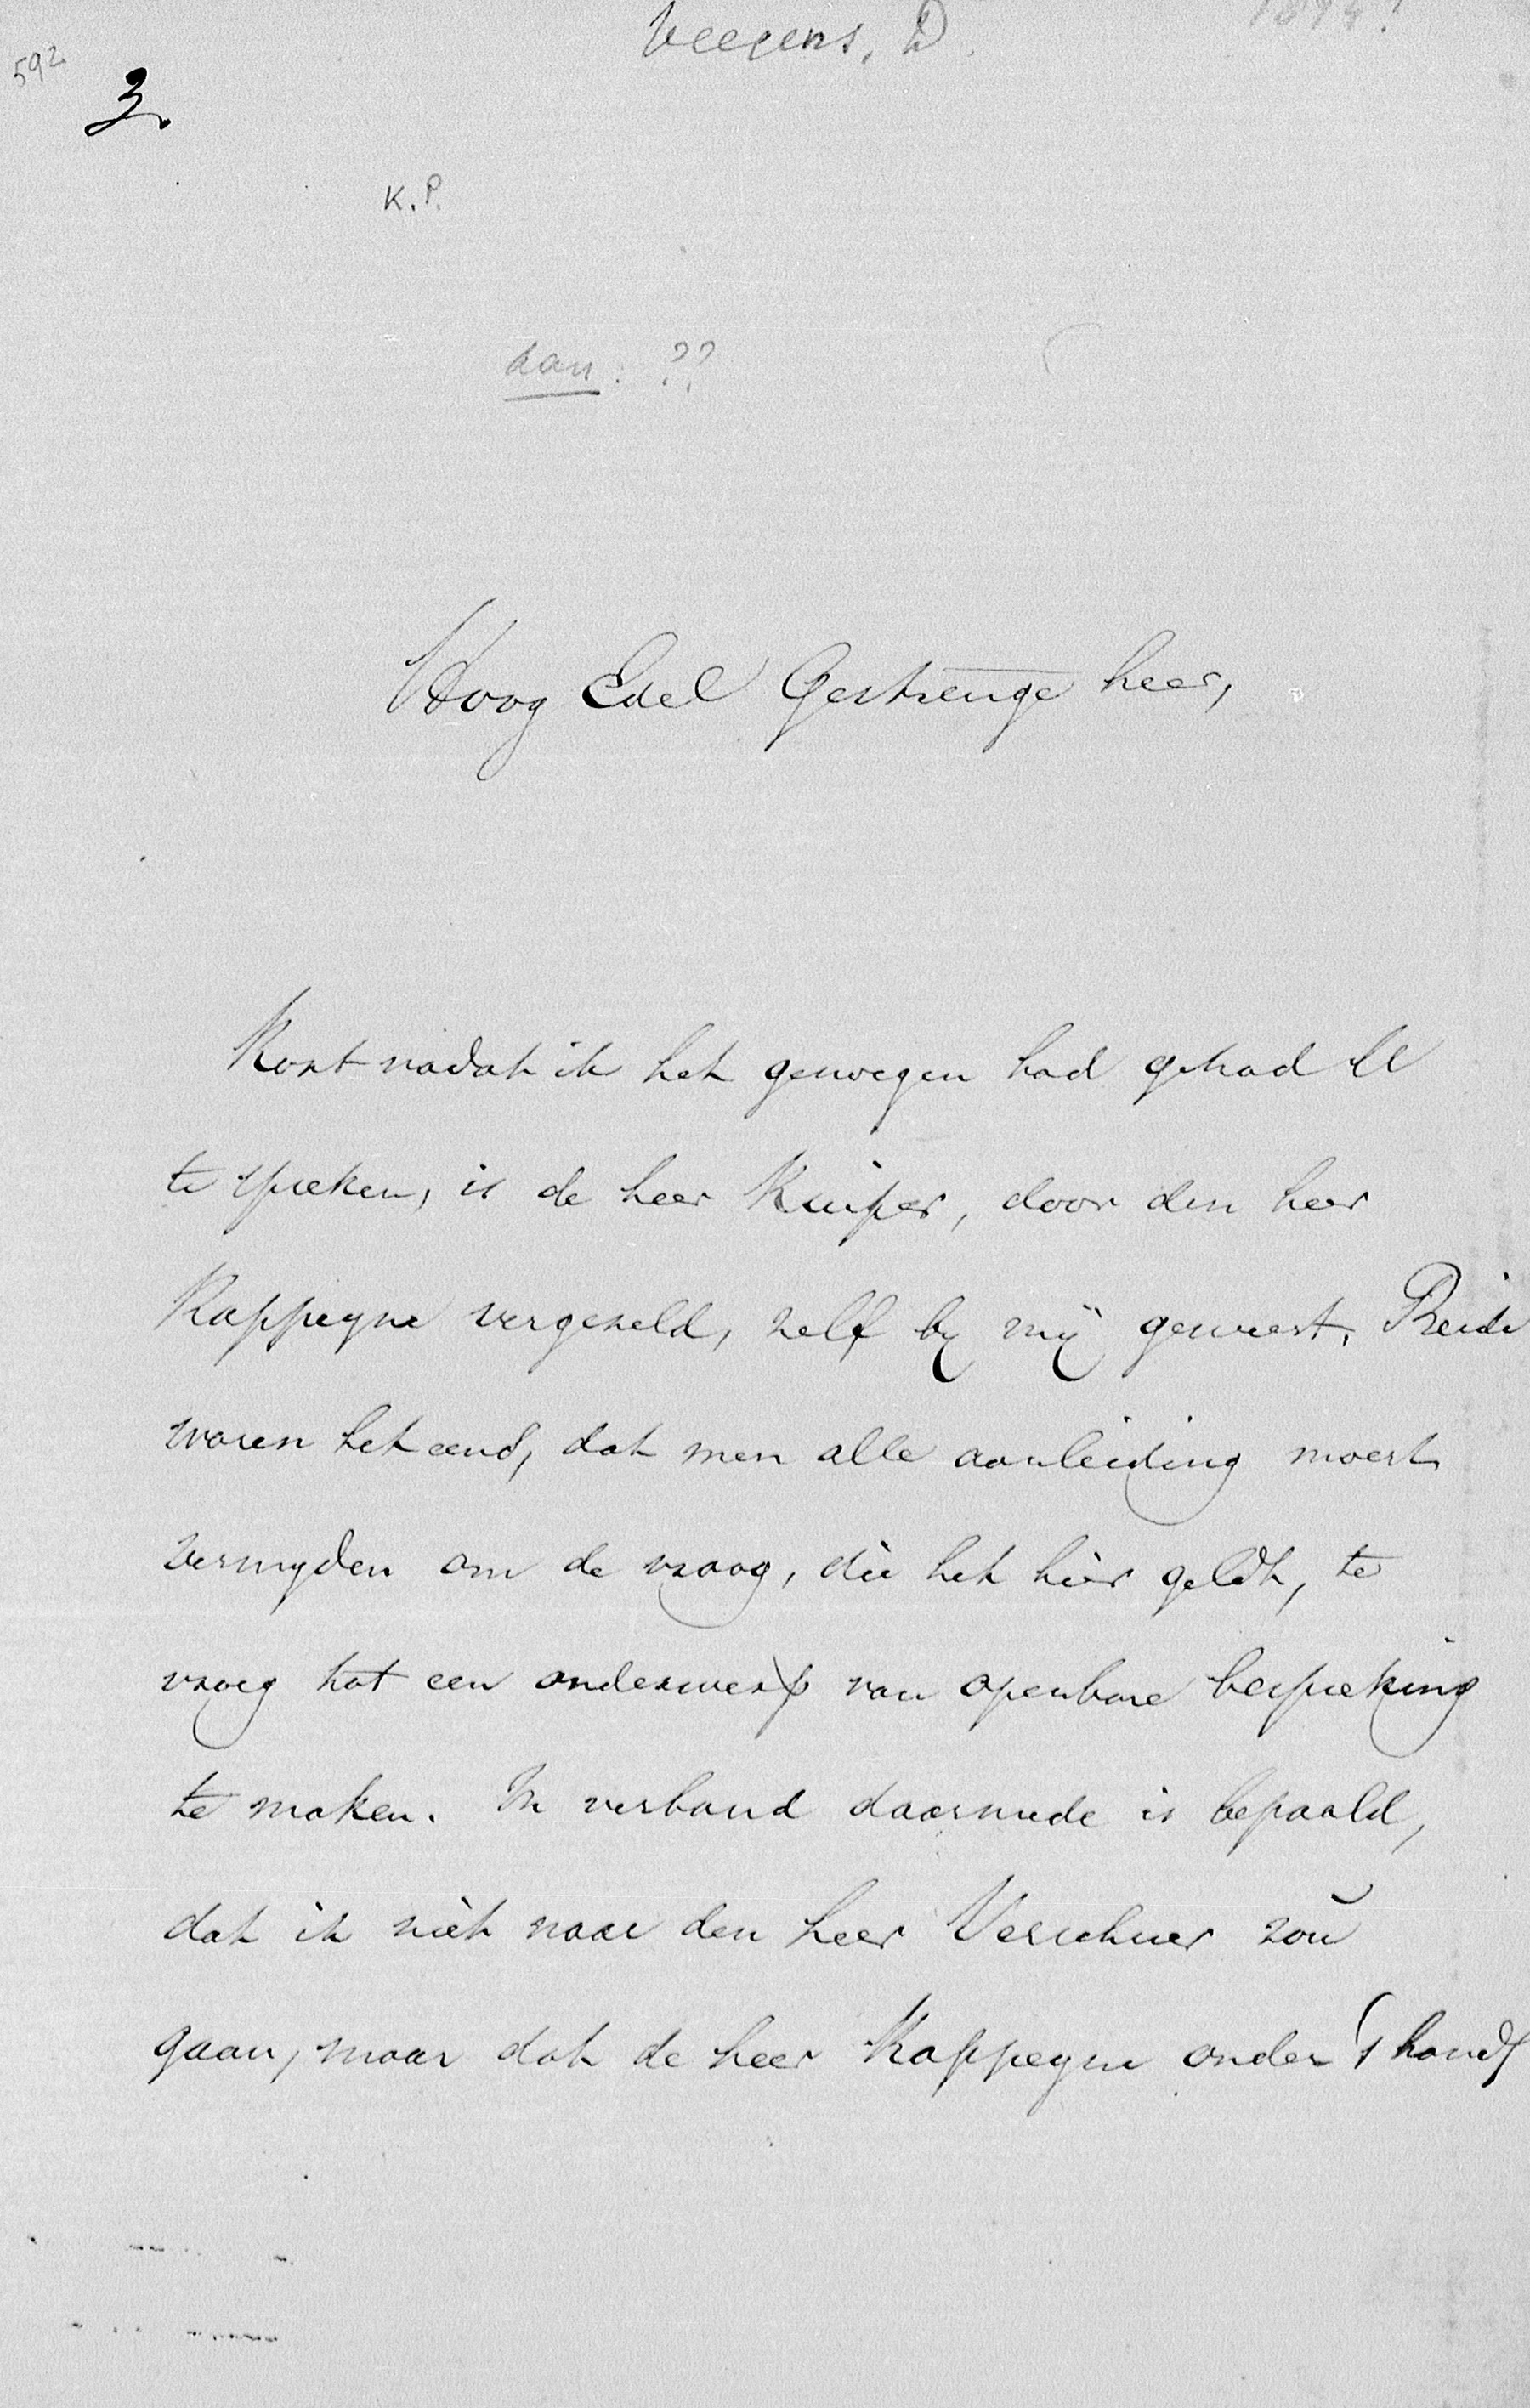 Veegens, D.
1874?
592
3.
K.P.
aan: ??
Hoog Edel Gestrenge heer,
Kort nadat ik het genoegen had gehad U
te spreken, is de heer Kuiper, door den heer
Kappeyne vergezeld, zelf by mÿ geweest. Beide
waren het eens, dat men alle aanleiding moest
vermyden om de vraag, die het hier geldt, te
vroeg tot een onderwerp van openbare bespreking
te maken. In verband daarmede is bepaald,
dat ik niet naar den heer Verschuer zou
gaan, maar dat de heer Kappeyne onder 's hands